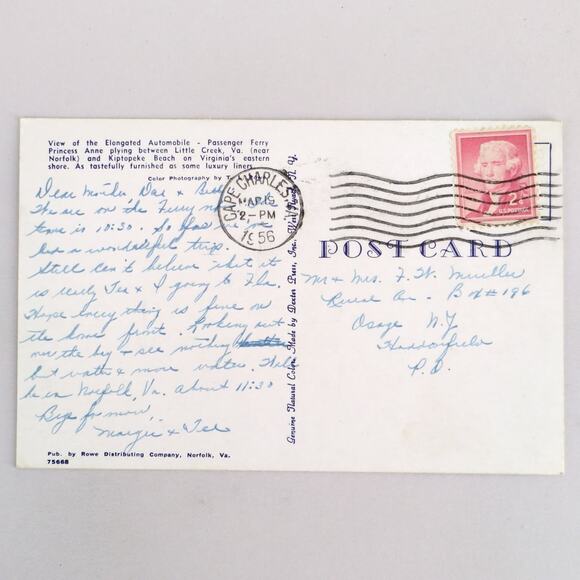 View of the Elongated Automobile - Passenger Ferry
Princess Anne plying between Little Creek, Va. (near
Norfolk) and Kiptopeke Beach on Virginia's eastern
shore. As tastefully furnished as some luxury liners.
Color Photography by
Dear Mother Dad &
We are on the Ferry
time is 10:30. So far
had a wonderful trip.
Still can't believe that it
is really Tee & I going to Fla.
Hope everything is fine on
the home front. Looking out
over the bay & see nothing
but water & more water. Will
be in Norfolk, Va. about 11:30
Bye for now,
Margie & Tee
Pub. by Rowe Distributing Company, Norfolk, Va.
75668
Genuine Natural Color Made by Dexter Press, Inc. West Nyack, N. Y.
CAPE CHARLES
MAR 15
2-PM
1956
2¢
U.S. POSTAGE
POST CARD
Mr & Mrs. F. W. Mueller
Rural Ave - Box #196
Osage N.J.
Haddonfield
P.O.